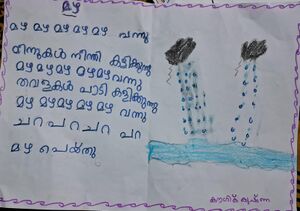 മഴ
മഴ മഴ മഴ മഴ മഴ വന്നു
മീനുകൾ നീന്തി കളിക്കുന്നു
മഴ മഴ മഴ മഴമഴവന്നു
തവളകൾ പാടി കളിക്കുന്നു
മഴ മഴ മഴ മഴ മഴ വന്നു
ചറ പറ ചറ പറ
മഴ പെയ്തു
കൃഷ്ണ